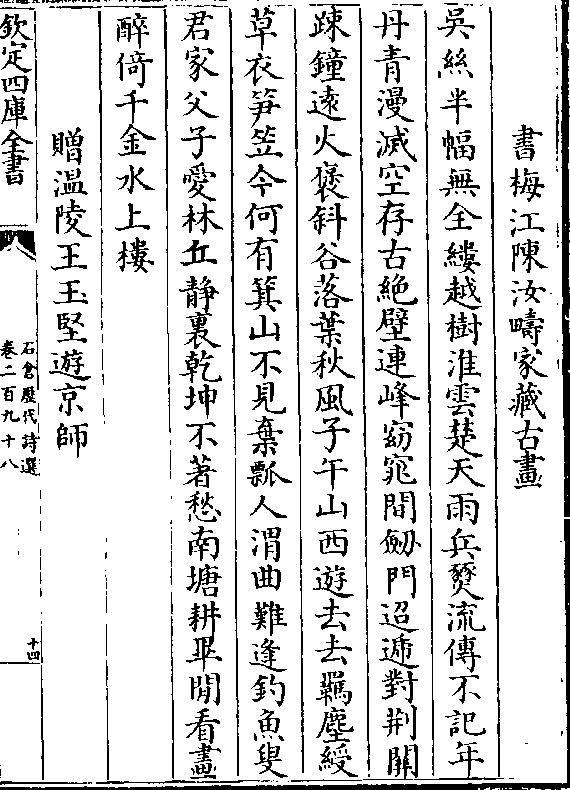 書梅江陳汝疇家藏古畫
吳絲半幅無全縷越樹淮雲楚天雨兵燹流傳不記年
丹青漫滅空存古絶壁連峰窈窕間劒門迢遞對荆關
踈鐘遠火襃斜谷落葉秋風子午山西遊去去羈塵綬
草衣笋笠今何有箕山不見棄瓢人渭曲難逢釣魚叟
君家父子愛林丘静裏乾坤不著愁南塘耕罷閒看畫
醉倚千金水上樓
贈温陵王玉堅遊京師
欽定四庫全書
石倉歴代詩選
卷二百九十八
十四